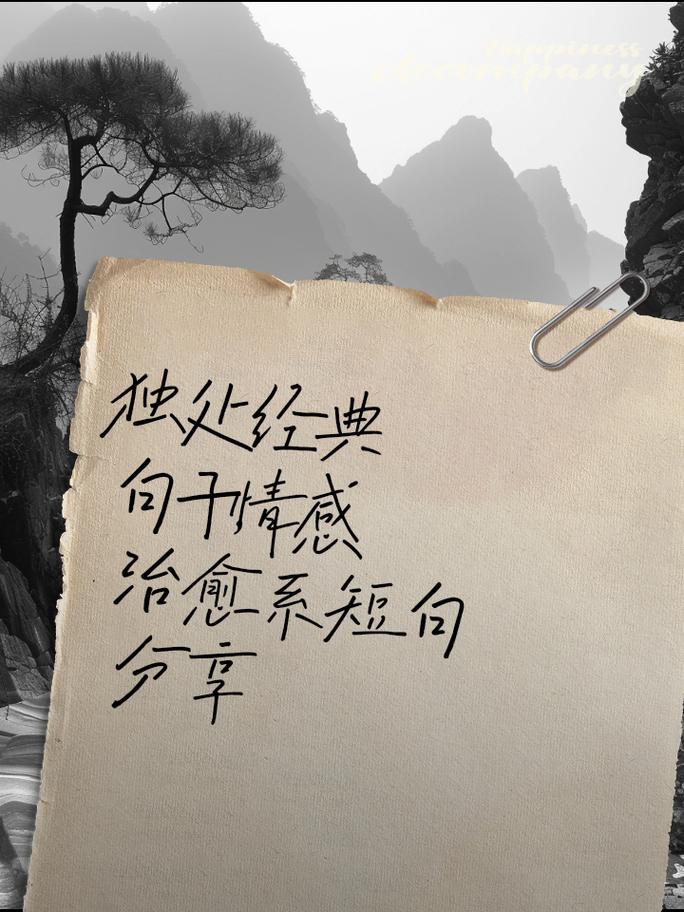 Happiness
独处经典
句子情感
治愈系短句
分享